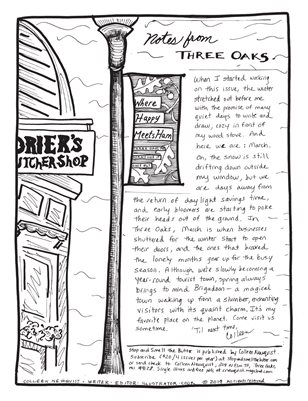 Notes from
THREE OAKS
When I started working
on this issue, the winter
stretched out before me
with the promise of many
quiet days to write and
draw, cozy in front of
my wood stove. And
here we are: March.
Oh, the snow is still
drifting down outside
my window, but we
are days away from
the return of daylight savings time,
and early bloomers are starting to poke
their heads out of the ground. In
Three Oaks, March is when businesses
shuttered for the winter start to open
their doors, and the ones that braved
the lonely months gear up for the busy
season. Although we're slowly becoming a
year-round tourist town, spring always
brings to mind Brigadoon – a magical
town waking up from a slumber, enchanting
visitors with its quaint charm. It's my
favorite place on the planet. Come visit us
sometime.
'Til next time,
Colleen
Where
Happy
Meets Ham
DRIER'S
BUTCHER SHOP
Stop and Smell the Butter is published by Colleen Newquist.
Subscribe
or send check to Colleen Newquist,
Single
COLLEEN NEWQUIST • WRITER • EDITOR • ILLUSTRATOR
© 2019 All rights reserved